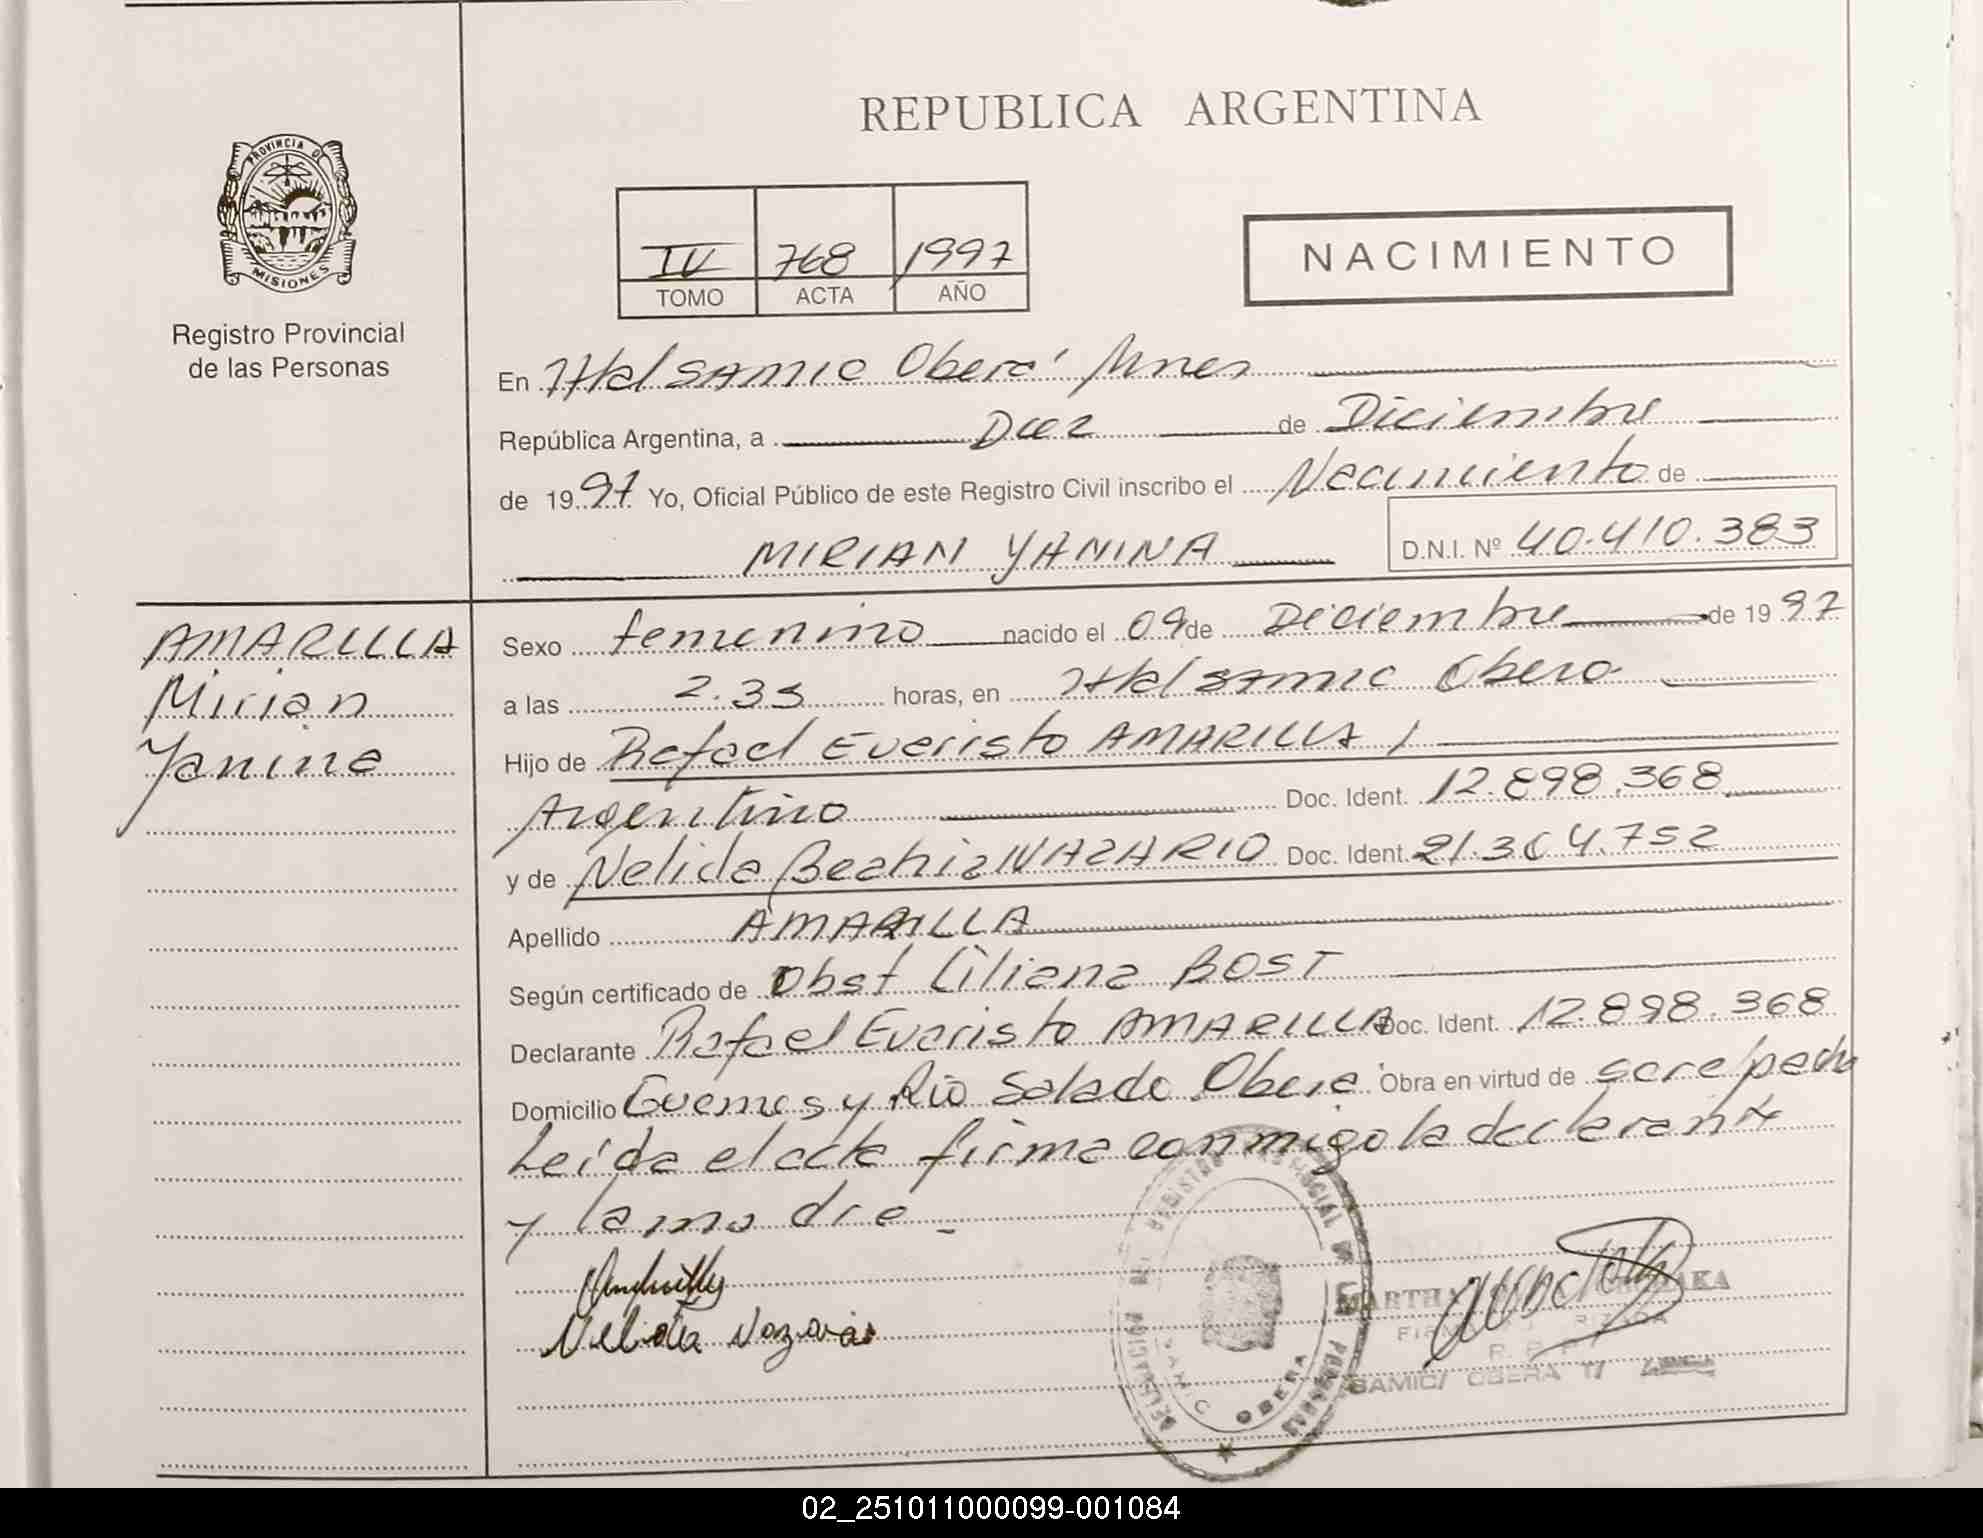 REPUBLICA ARGENTINA
PROVINCIA DE
MISIONES
Registro Provincial
de las Personas
IV 768 1997
TOMO ACTA AÑO
NACIMIENTO
En Htal SAMIC Oberá Mnes
República Argentina, a Diez de Diciembre
de 1997 Yo, Oficial Público de este Registro Civil inscribo el Nacimiento de
MIRIAN YANINA D.N.I. Nº 40.410.383
AMARILLA
Mirian
Yanina
Sexo femenino nacido el 09 de Diciembre de 1997
a las 2.35 horas, en Htal SAMIC Oberá
Hijo de Rafael Evaristo AMARILLA,
Argentino Doc. Ident. 12.898.368
y de Nelida Beatriz NAZARIO Doc. Ident. 21.304.752
Apellido AMARILLA
Según certificado de Obst Liliana BOST
Declarante Rafael Evaristo AMARILLA Doc. Ident. 12.898.368
Domicilio Guemes y Río Salado Oberá Obra en virtud de ser el padre
Leída el acta firma conmigo la declarante
y la madre -
Nelida Nazario
DELEGACION DEL REGISTRO PROVINCIAL DE LAS PERSONAS
SAMIC OBERA
MARTHA
R. P. P.
SAMIC/ OBERA
02_251011000099-001084